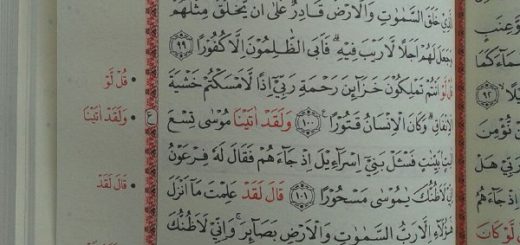 الَّذِي خَلَقَ السَّمٰوٰتِ وَالْاَرْضَ قَادِرٌ عَلٰٓى اَنْ يَخْلُقَ مِثْلَهُمْ
وَجَعَلَ لَهُمْ اَجَلًا لَا رَيْبَ فِيْهِ فَاَبَى الظّٰلِمُوْنَ اِلَّا كُفُوْرًا ﴿٩٩﴾
قُلْ لَوْ اَنْتُمْ تَمْلِكُوْنَ خَزَآئِنَ رَحْمَةِ رَبِّيْٓ اِذًا لَاَمْسَكْتُمْ خَشْيَةَ
الْاِنْفَاقِ وَكَانَ الْاِنْسَانُ قَتُوْرًا ﴿١٠٠﴾ وَلَقَدْ اٰتَيْنَا مُوْسٰى تِسْعَ
اٰيٰتٍ بَيِّنٰتٍ فَسْئَلْ بَنِيْٓ اِسْرَآءِيْلَ اِذْ جَآءَهُمْ فَقَالَ لَهُ فِرْعَوْنُ
اِنِّيْ لَاَظُنُّكَ يٰمُوْسٰى مَسْحُوْرًا ﴿١٠١﴾ قَالَ لَقَدْ عَلِمْتَ مَآ اَنْزَلَ
هٰٓؤُلَآءِ اِلَّا رَبُّ السَّمٰوٰتِ وَالْاَرْضِ بَصَآئِرَ وَاِنِّيْ لَاَظُنُّكَ
قُلْ لَوْ
وَلَقَدْ اٰتَيْنَا
ع
قَالَ لَقَدْ
وَعِنَبٍ
٩٢